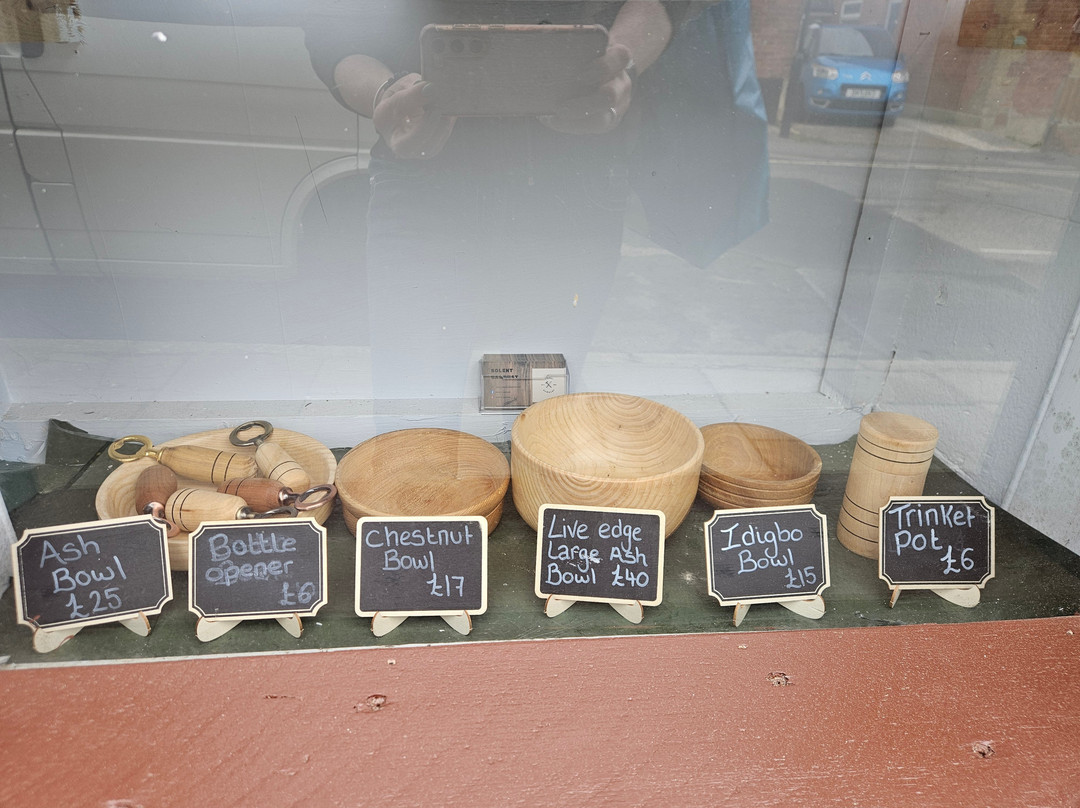 Ash
Bowl
£25
Bottle
opener
£6
Chestnut
Bowl
£17
Live edge
Large Ash
Bowl £40
Idigbo
Bowl
£15
Trinket
Pot
£6